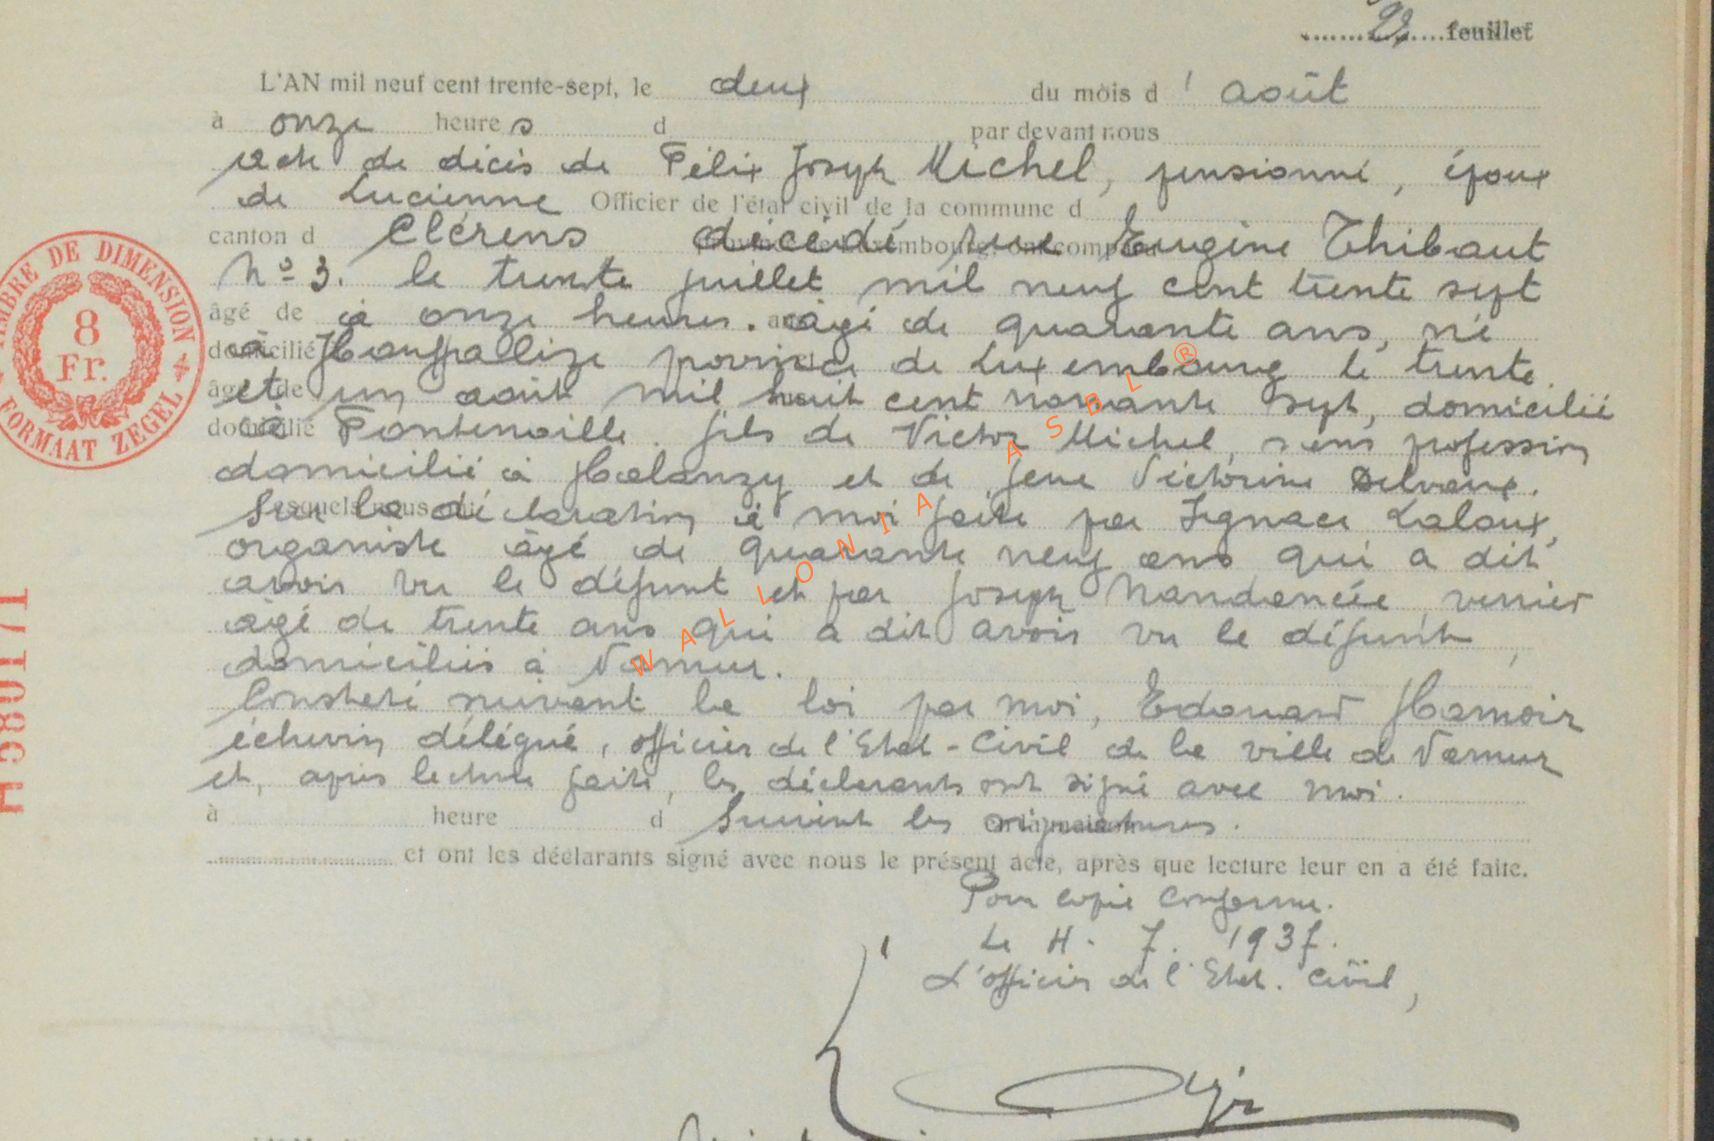 2e feuillet
L'AN mil neuf cent trente-sept, le deux du mois d' août
à onze heures d par devant nous
acte de décès de Félix Joseph Michel, pensionné, époux
de Lucienne Officier de l'état civil de la commune d
canton d Clérens décédé rue Eugène Thibaut
No 3. le trente juillet mil neuf cent trente sept
âgé de à onze heures. âgé de quarante ans, né
domicilié à Houffalize province de Luxembourg le trente
âgé de et un août mil huit cent nonante sept, domicilié
domicilié à Fontenoille. fils de Victor Michel, sans profession
domicilié à Halanzy et de feue Victorine Delvaux.
lesquels nous ont Sur la déclaration à moi faite par Ignace Laloux,
organiste âgé de quarante neuf ans qui a dit
avoir vu le défunt et par Joseph verrier
âgé de trente ans qui a dit avoir vu le défunt,
domiciliés à Namur.
Constaté suivant la loi par moi, Edouard Hamoir
échevin délégué, officier de l'Etat-Civil de la ville de Namur
et, après lecture faite, les déclarants ont signé avec moi.
à heure d Suivent les signatures.
et ont les déclarants signé avec nous le présent acte, après que lecture leur en a été faite.
Pour copie conforme.
Le 7. 1937.
L'officier de l'Etat. Civil,
TIMBRE DE DIMENSION
8
Fr.
FORMAAT ZEGEL
H580171
WALLONIA ASBL ®